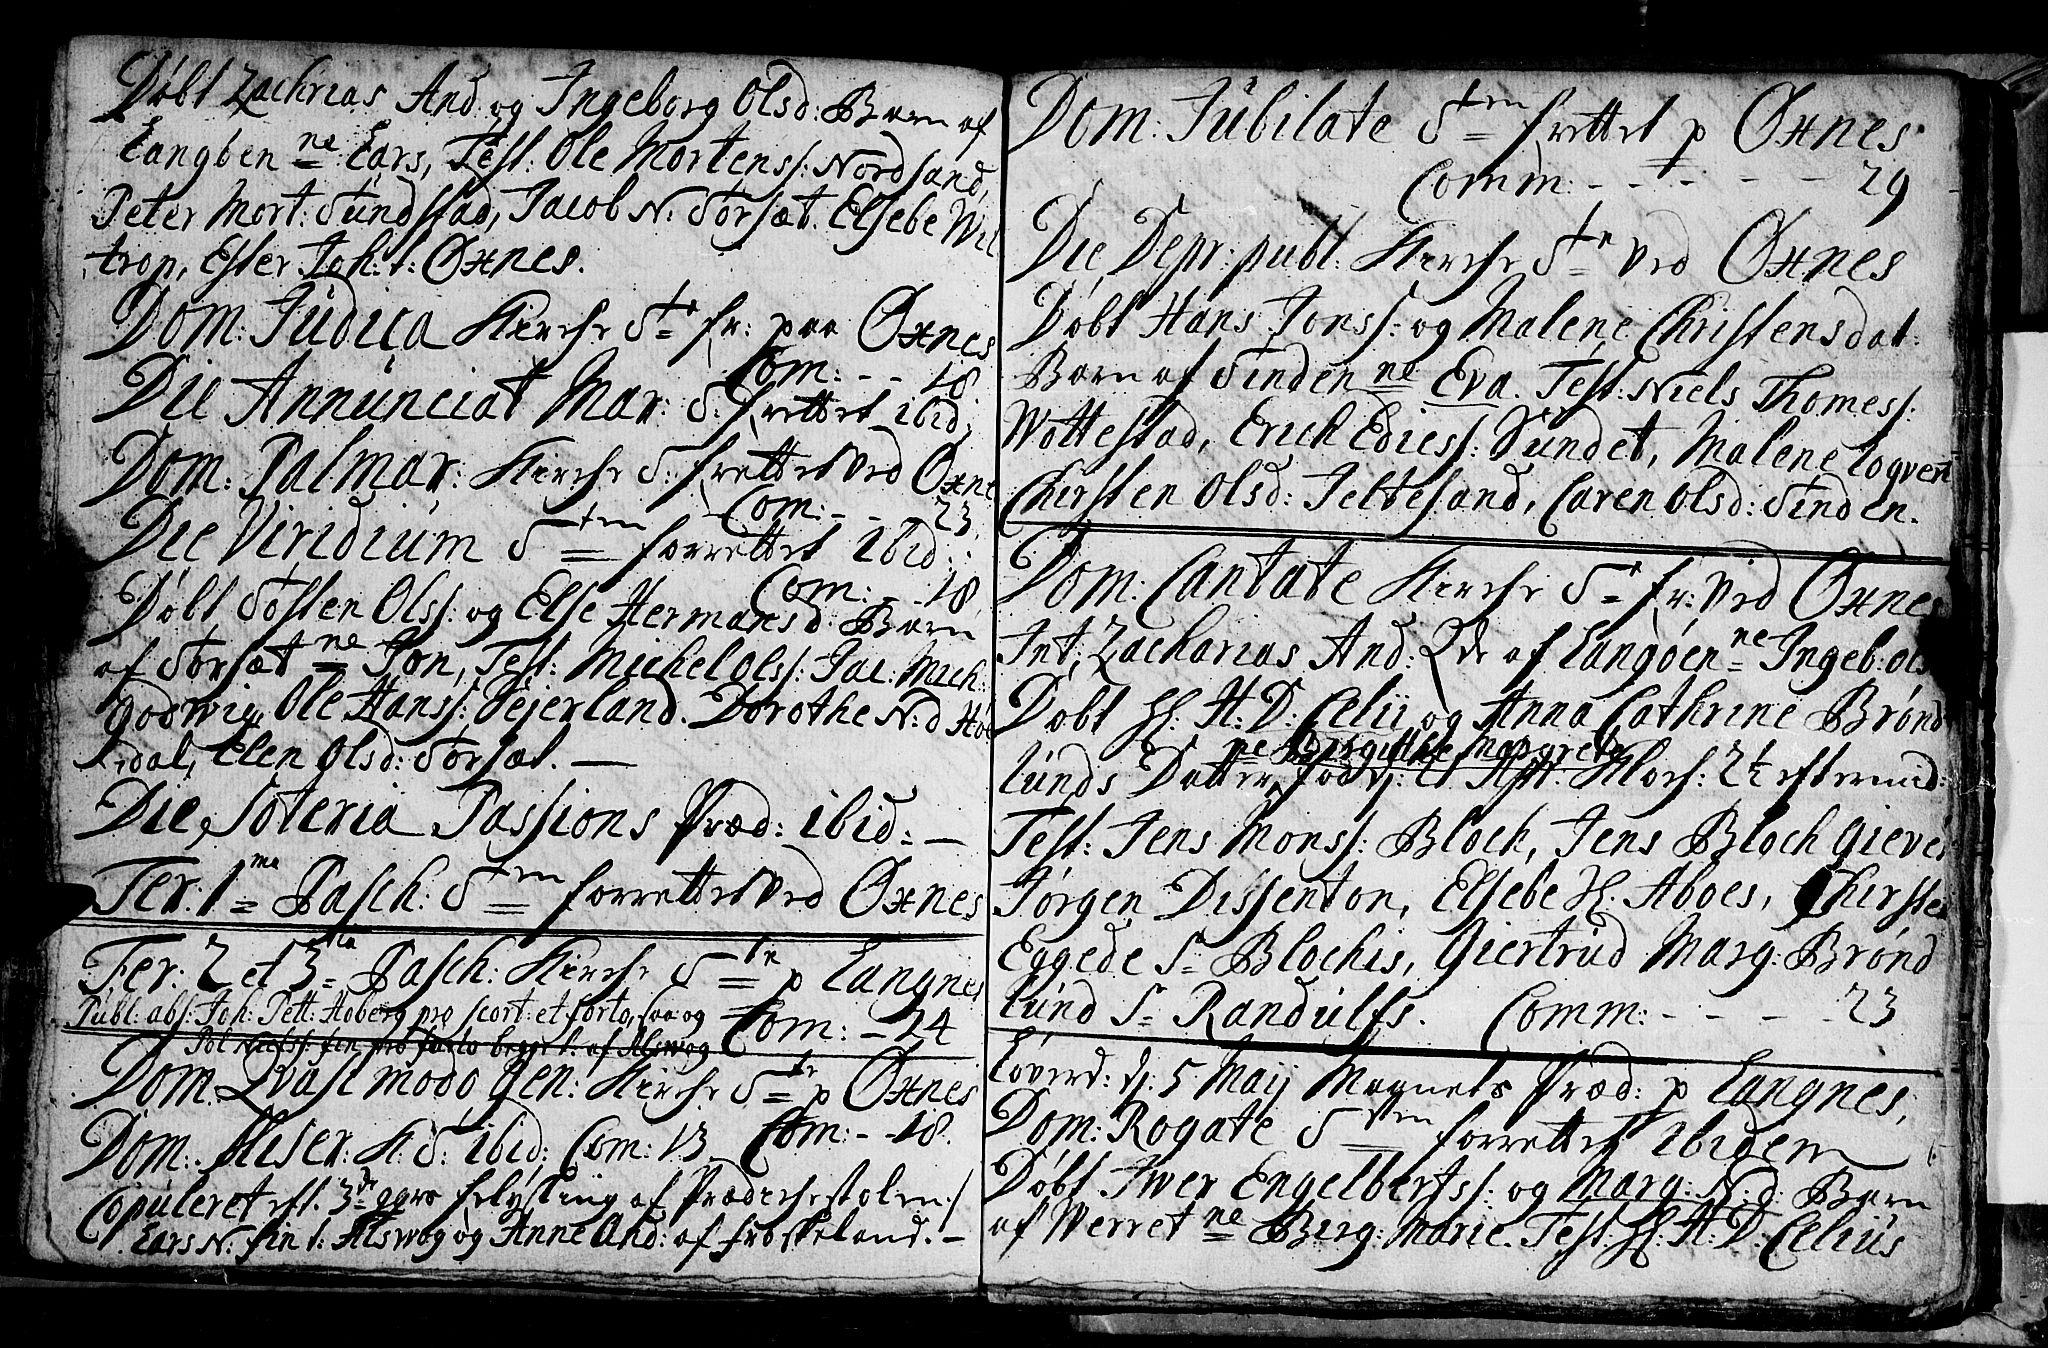 Døbt Zachrias And: og Ingeborg Olsd: Barn af
Langøen ne Lars, Test: Ole Mortenss: Nordsand,
Peter Mort: Sundstad, Jacob N: Sorsæt. Elsebe Wil
trop, Ester Joh: t: Øxnes.
Dom: Judica Kirche Ste fr: paa Øxnes
Com: - - 18.
Die Annunciat Mar: S: frettet ibid:
Dom: Palmar: Kirche S: frettet ved Øxne
Com: - - - 23
Die Viridium Sten forrettet ibid:
Com: - - 18.
Døbt Østen Olss: og Else Hermansd: Barn
af Sorsæt ne Jon, Test: Michel Olss: Jac: Mich:
Godwig, Ole Hanss: Jejerland. Dorothe N: d Høc
dal, Elen Olsd: Sorsæt. —
Die Soteria Passions Præd: ibid: —
Fer: 1ma Pasch: Sten forrettet ved Øxnes
Fer: 2 et 3tia Pasch: Kirche Ste p Langnes
Publ: abs: Joh: Pett: Hoberg pro scort: et furto, saa og
Com: - 24
Pol Nielss: fin pro furto beggt: af Alswog
Dom. Qvasi modo gen: Kirche Ste p Øxnes
Com: - - 18.
Dom: Miser: K: S: ibid: Com: 13
Copuleret eft. 3de ggrs felysting af Prædichestolen:/
Lars N: fin t: Alswog og Anne And: af froskeland. —
Dom: Jubilate Sten frettet p Øxnes
Comm: - - - - - 29
Die Depr: publ: Kirche Ste ved Øxnes
Døbt Hans Jonss: og Malene Christensdat:
Barn af Tinden ne Eva. Test: Niels Thomess:
Wottestad, Erich Ediess: Sundet, Malene Loqvent
Chirsten Olsd: Jeltesand, Caren Olsd: Tinden.
Dom: Cantate Kirche Se fr: ved Øxnes
Int: Zacharias And: Qde af Langøen ne Ingeb: Ols
Døbt H: H: D: Celii og Anna Cathrine Brønd
ne Margrete
lunds Datter, Kloch: 2½ eftermid:
Test: Jens Monss: Bloch, Jens Bloch Giever
Jørgen Dissenton, Elsebe H: Aboes, Chirste
Eggede S= Blochis, Giertrud Marg: Brønd
lund S= Randulfs. Comm: - - - - 23
Løverd: d: 5 Maij Magnets Præd: p Langnes,
Dom: Rogate Sten forrettet ibidem
Døbt Iwer Engelbertss: og Marg: N: d: Barn
af Werret ne Berg: Marie. Test: H: H: D: Celius